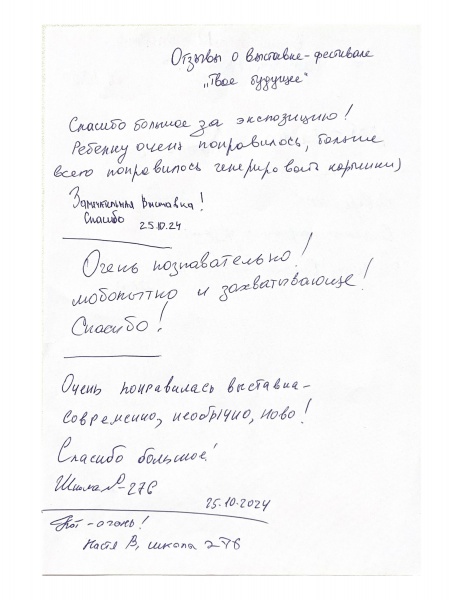 Отзывы о выставке-фестивале
„Твое будущее"
Спасибо большое за экспозицию!
Ребенку очень понравилось, больше
всего понравилось генерировать картинки)
Замечательная выставка!
Спасибо 25.10.24
Очень познавательно!
любопытно и захватывающе!
Спасибо!
Очень понравилась выставка-
современно, необычно, ново!
Спасибо большое!
Школа №276
25.10.2024
- огонь!
Настя В, школа 276